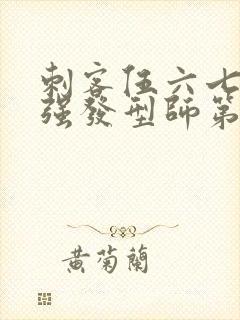 刺客伍六七
强發型師第
黄菊蘭